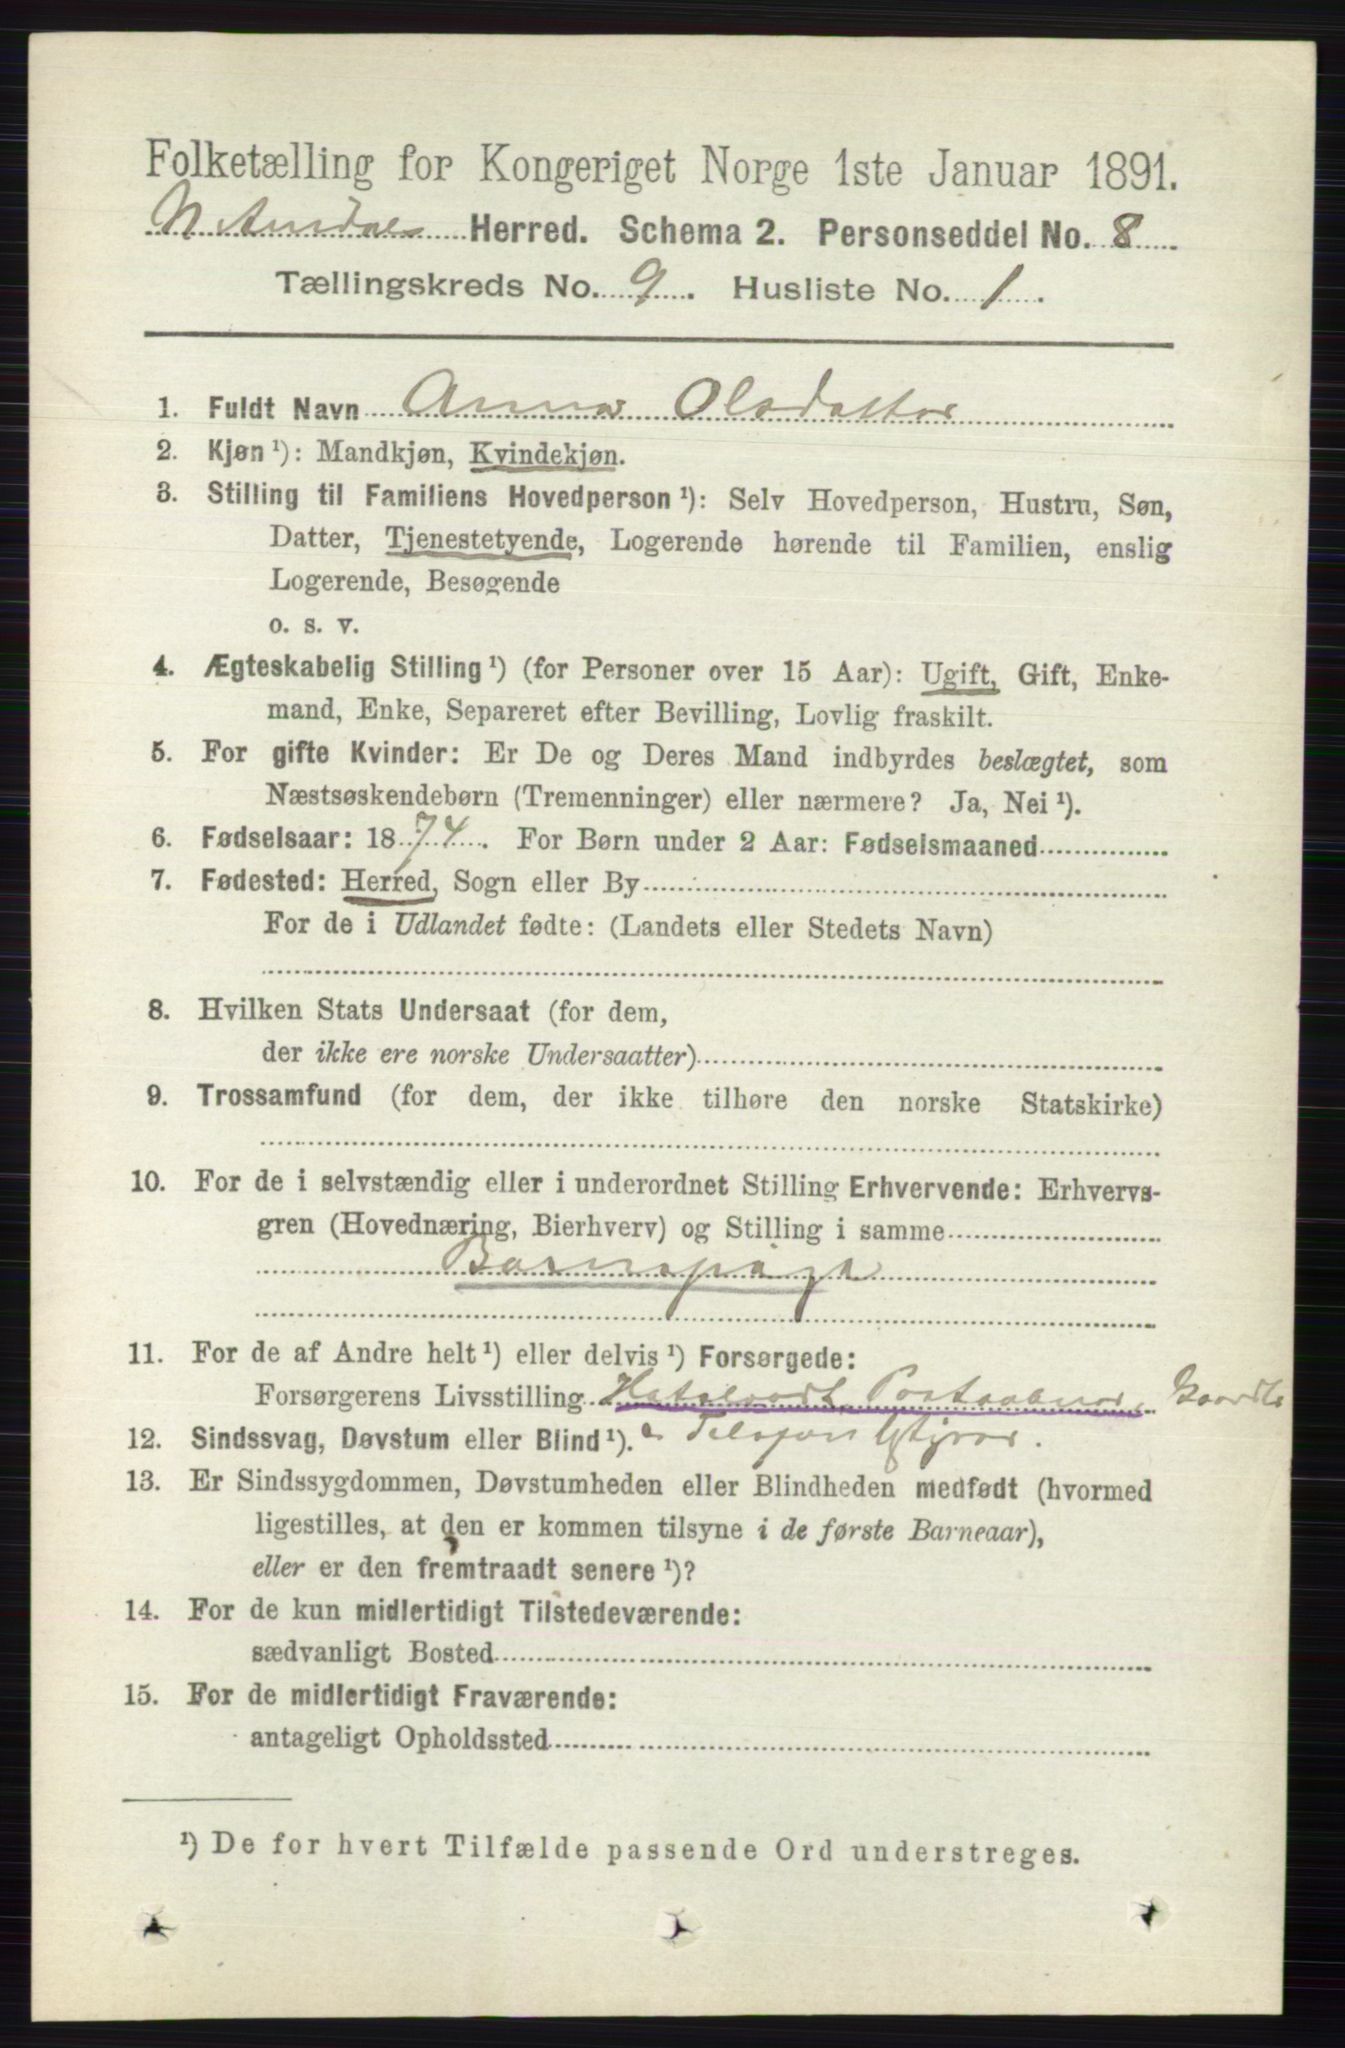 Folketælling for Kongeriget Norge 1ste Januar 1891.
N. Aurdals Herred. Schema 2. Personseddel No. 8
Tællingskreds No. 9. Husliste No. 1.
1. Fuldt Navn Anna Olsdatter
2. Kjøn ¹): Mandkjøn, Kvindekjøn.
3. Stilling til Familiens Hovedperson ¹): Selv Hovedperson, Hustru, Søn,
Datter, Tjenestetyende, Logerende hørende til Familien, enslig
Logerende, Besøgende
o. s. v.
4. Ægteskabelig Stilling ¹) (for Personer over 15 Aar): Ugift, Gift, Enke-
mand, Enke, Separeret efter Bevilling, Lovlig fraskilt.
5. For gifte Kvinder: Er De og Deres Mand indbyrdes beslægtet, som
Næstsøskendebørn (Tremenninger) eller nærmere? Ja, Nei ¹).
6. Fødselsaar: 1874. For Børn under 2 Aar: Fødselsmaaned
7. Fødested: Herred, Sogn eller By
For de i Udlandet fødte: (Landets eller Stedets Navn)
8. Hvilken Stats Undersaat (for dem,
der ikke ere norske Undersaatter)
9. Trossamfund (for dem, der ikke tilhøre den norske Statskirke)
10. For de i selvstændig eller i underordnet Stilling Erhvervende: Erhvervs-
gren (Hovednæring, Bierhverv) og Stilling i samme
Barnepige
11. For de af Andre helt ¹) eller delvis ¹) Forsørgede:
Forsørgerens Livsstilling Hotelvært, Postaabner,
12. Sindssvag, Døvstum eller Blind ¹). Telefonbstyrer.
13. Er Sindssygdommen, Døvstumheden eller Blindheden medfødt (hvormed
ligestilles, at den er kommen tilsyne i de første Barneaar),
eller er den fremtraadt senere ¹)?
14. For de kun midlertidigt Tilstedeværende:
sædvanligt Bosted
15. For de midlertidigt Fraværende:
antageligt Opholdssted
¹) De for hvert Tilfælde passende Ord understreges.